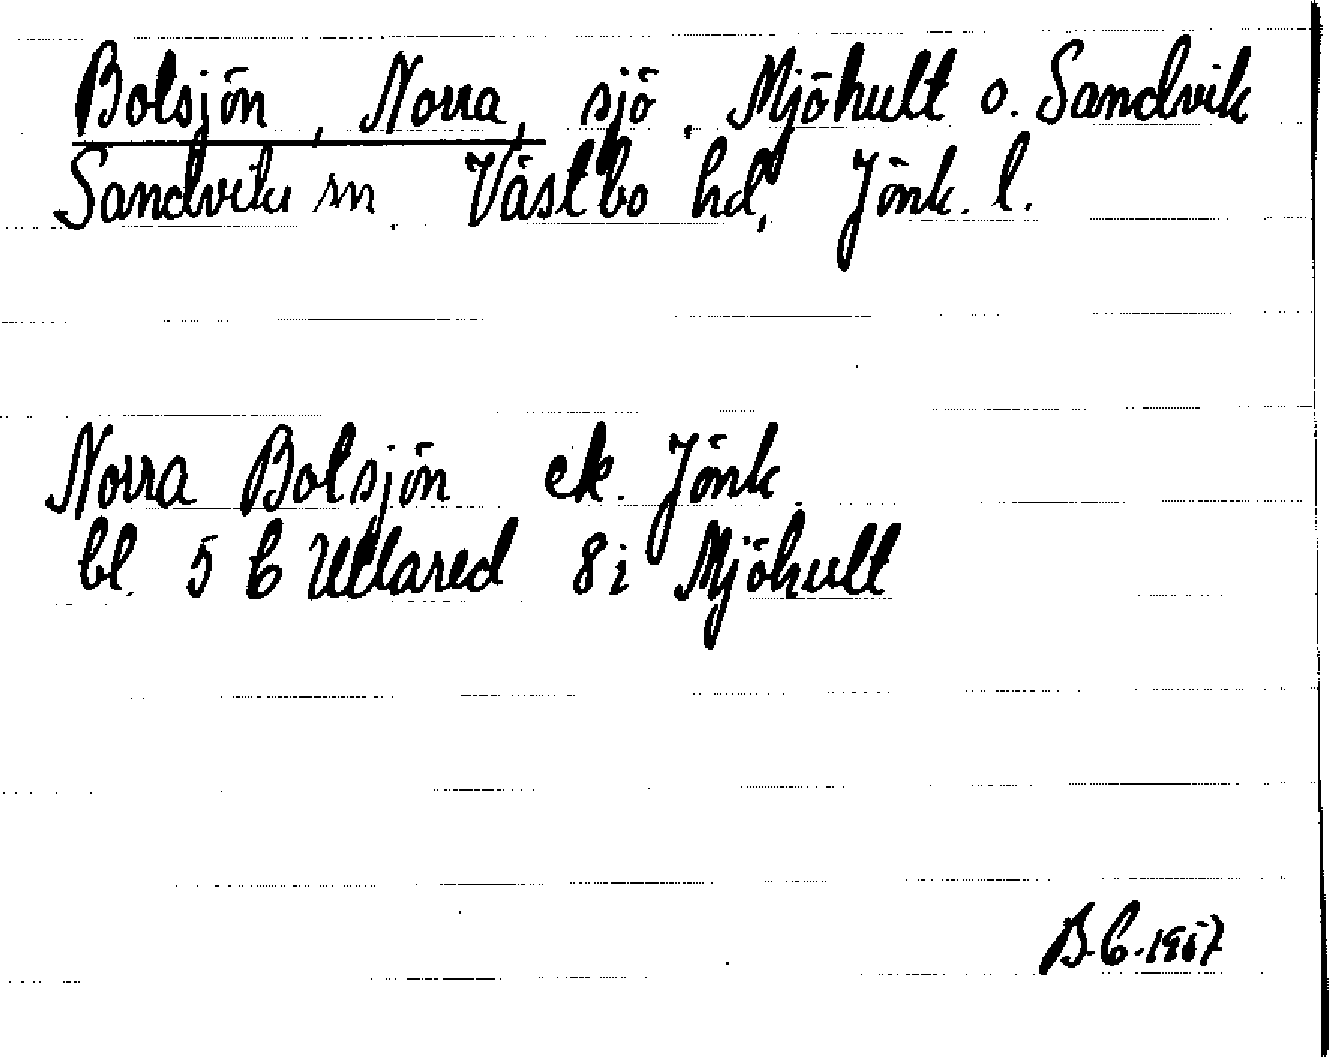 Bolsjön, Norra, sjö, Mjöhult o. Sandvik
Sandviks sn Västbo hd, Jönk. l.
Norra Bolsjön ek. Jönk.
bl. 5 C Ullared 8 i Mjöhult
B.C. 1967